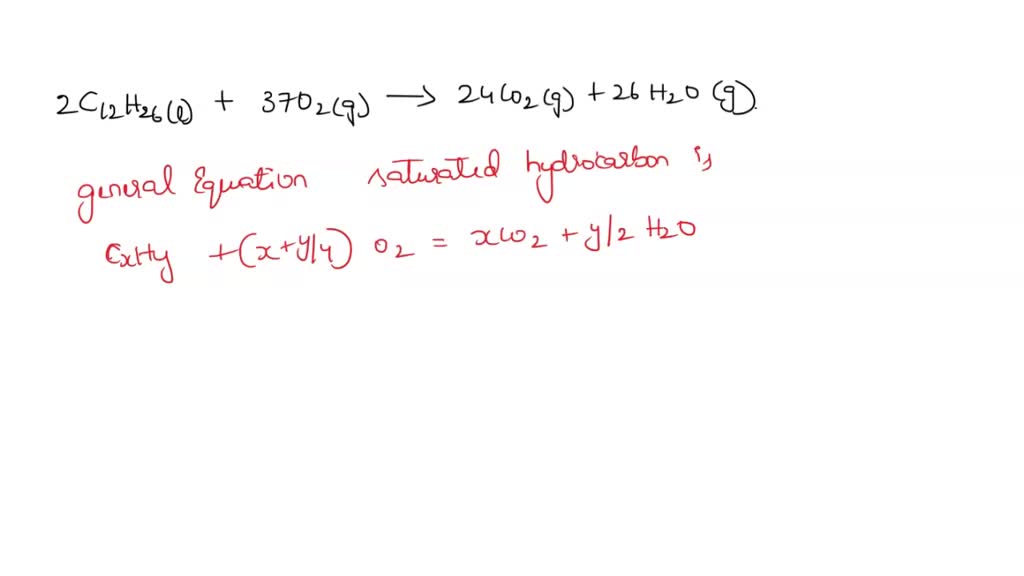 2C₁₂H₂₆(l) + 37O₂(g) → 24CO₂(g) + 26H₂O(g).
general Equation saturated hydrocarbon is
CxHy + (x+y/4) O₂ = xCO₂ + y/2 H₂O